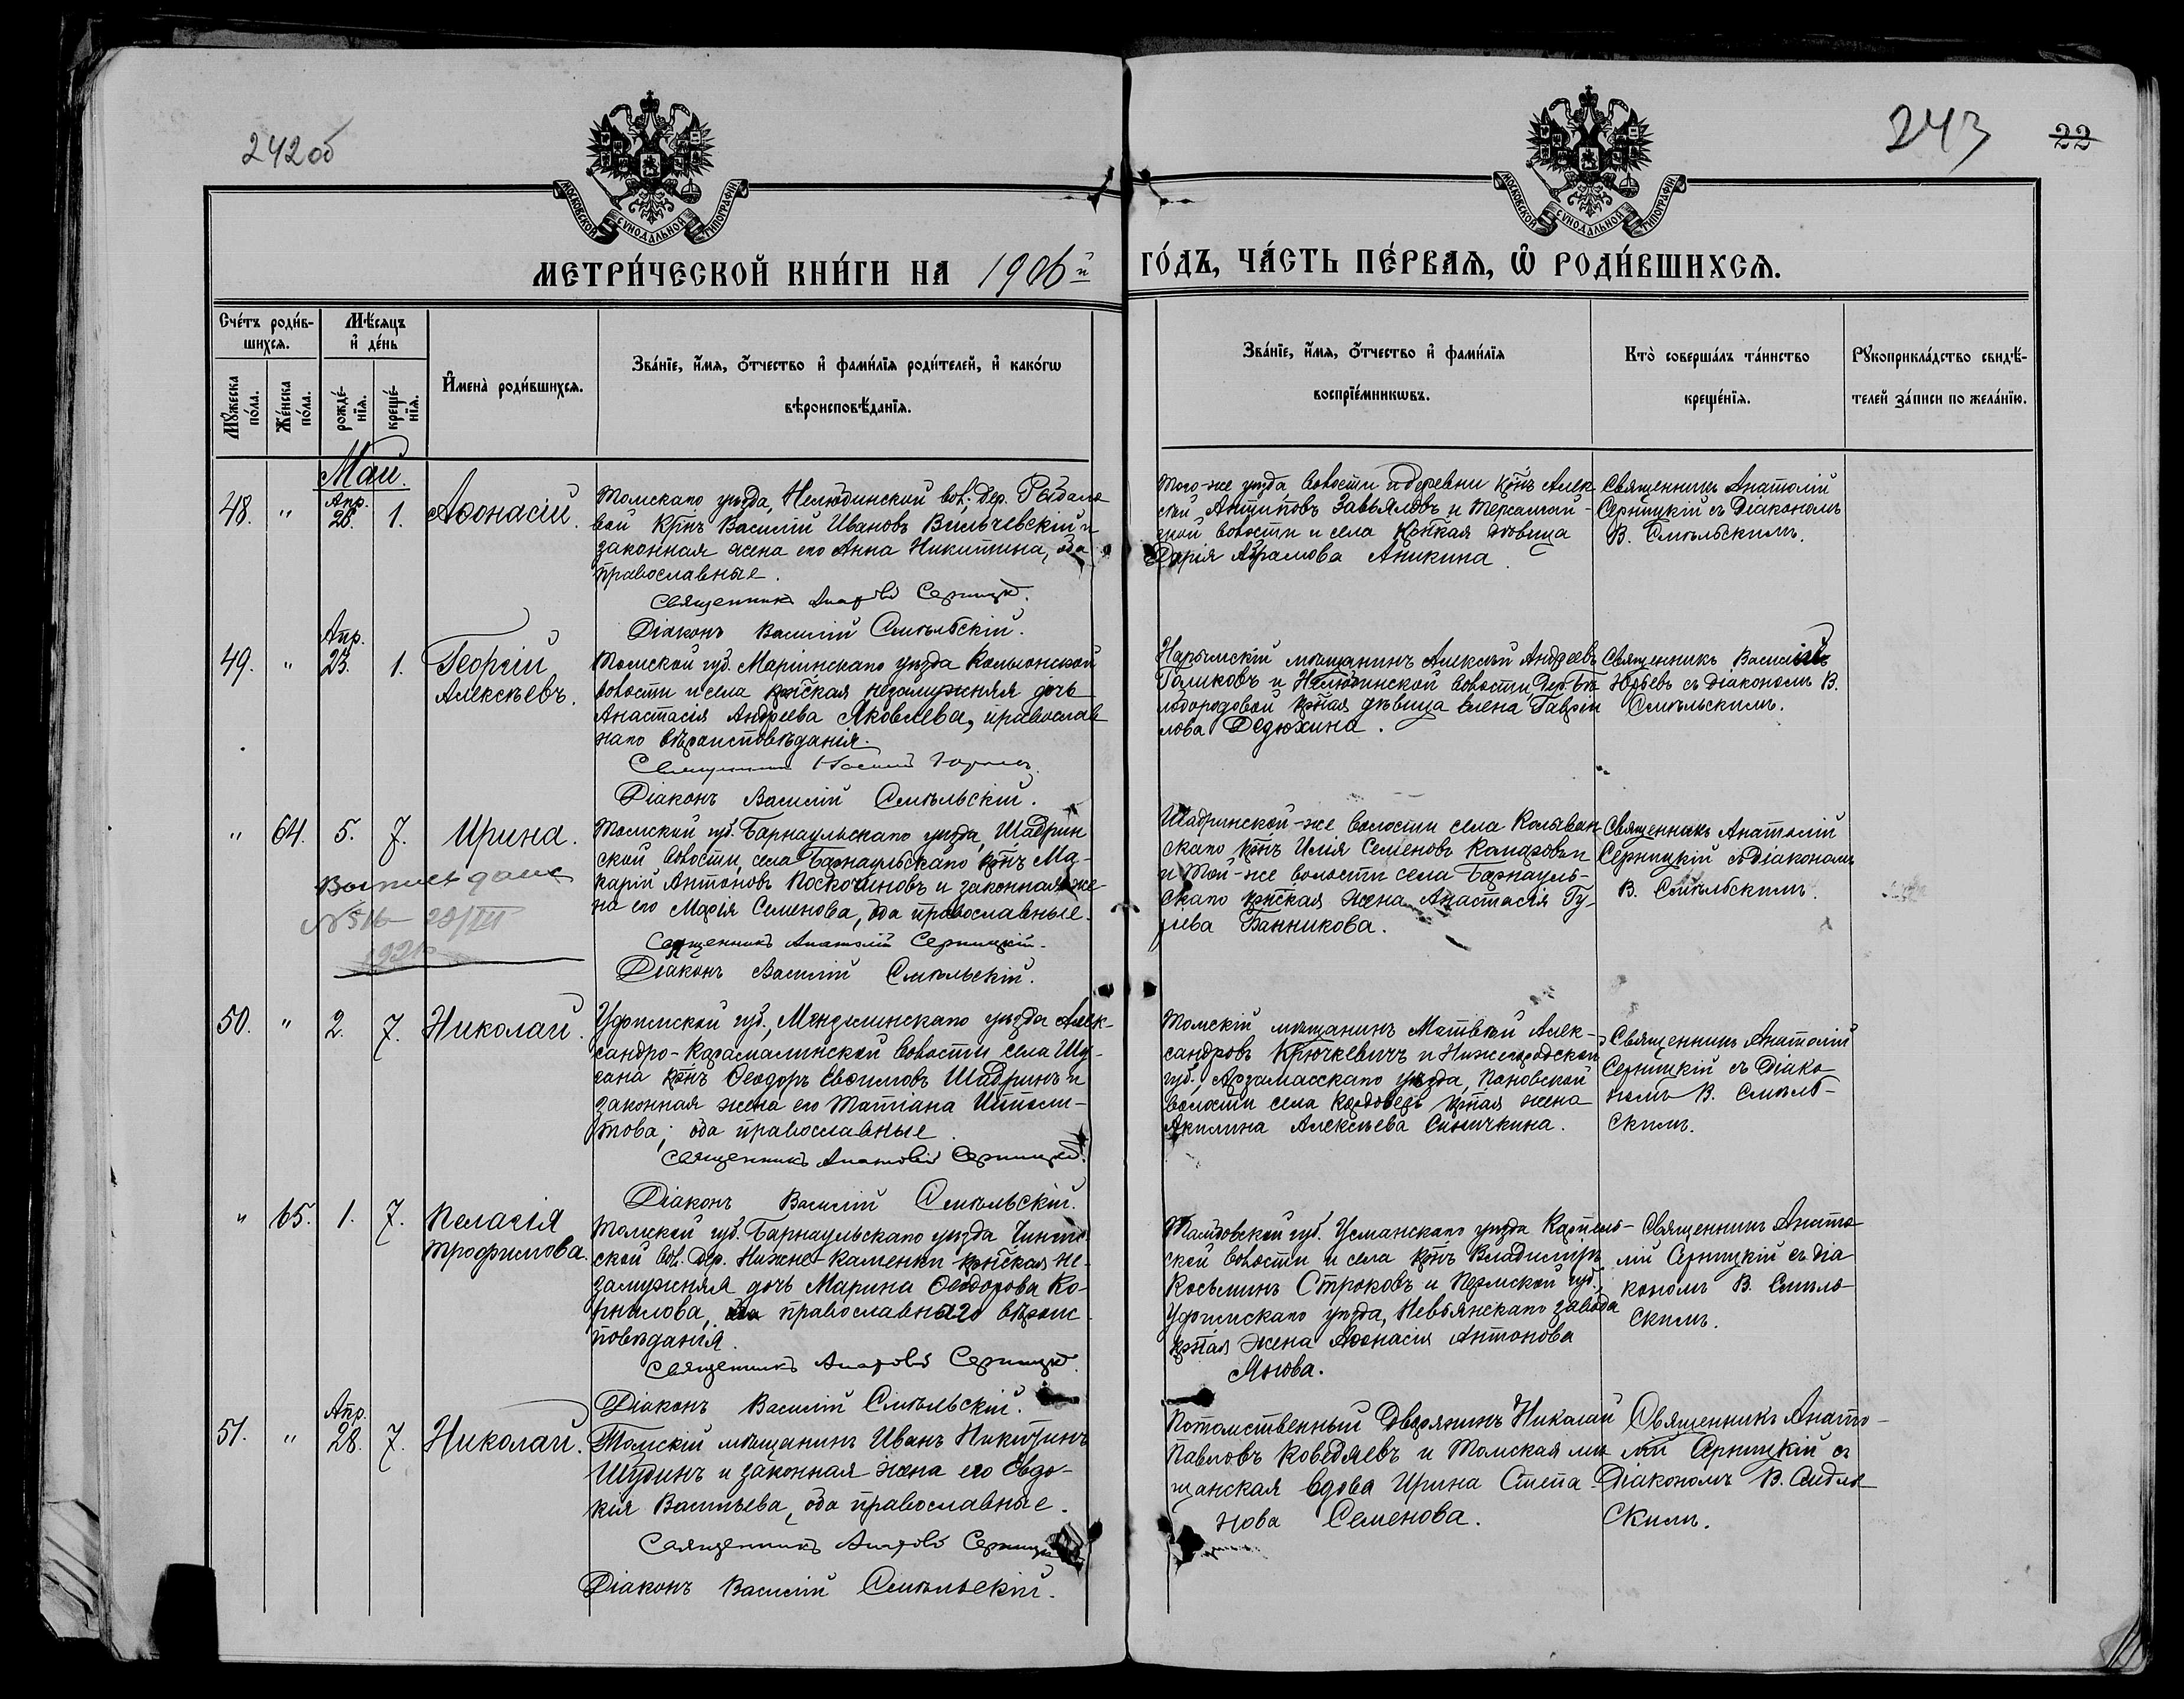 242об
243
22
МОСКОВСКОЙ СѴНОДАЛЬНОЙ ТИПОГРАФІИ
МОСКОВСКОЙ СѴНОДАЛЬНОЙ ТИПОГРАФІИ
МЕТРИ́ЧЕСКОЙ КНИ́ГИ НА 1906й ГО́ДЪ, ЧА́СТЬ ПЕ́РВАѦ, Ѡ РОДИ́ВШИХСѦ.
Сче́тъ роди́в-
шихсѧ.
Мꙋ́жеска по́ла.
Же́нска по́ла.
Мѣ́сѧцъ
и҆ де́нь
рожде́-
нїѧ.
креще́-
нїѧ.
И҆мена̀ роди́вшихсѧ.
Зва́нїе, и҆́мѧ, ѻ҆́тчество и҆ фами́лїѧ роди́телей, и҆ како́гѡ
вѣроисповѣ́данїѧ.
Зва́нїе, и҆́мѧ, ѻ҆́тчество и҆ фами́лїѧ
воспрїе́мникѡвъ.
Кто̀ соверша́лъ та́инство
креще́нїѧ.
Рꙋкоприкла́дство свидѣ́-
телей за́писи по жела́нїю.
Май.
48.
"
Апр.
28.
1.
Аѳонасій.
Томскаго уѣзда, Нелюбинской вол. дер. Рыбало
вой крнъ Василій Ивановъ Вильчевскій и
законная жена его Анна Никитина, оба
православные.
Священникъ Анатолій Серницкій.
Діаконъ Василій Смѣльскій.
Того-же уѣзда волости и деревни крнъ Алек
сѣй Антиповъ Завьяловъ и
волости и села крткая дѣвица
Дарія Абрамова Аникина.
Священникъ Анатолій
Серницкій съ Діакономъ
В. Смѣльскимъ.
49.
"
Апр.
23.
1.
Георгій
Алексѣевъ.
Томской губ. Маріинскаго уѣзда Колыонской
волости и села крнская незамужняя дочь
Анастасія Андреева Яковлева, православ
наго вѣроисповѣданія.
Священникъ Василій Юрьевъ.
Діаконъ Василій Смѣльскій.
Нарымскій мѣщанинъ Алексѣй Андреевъ
Галиковъ и Нелюбинской волости дер. Бѣ
лобородовой крткая дѣвица Елена Гаври
лова Дедюхина.
Священникъ Василій
Юрьевъ съ діакономъ В.
Смѣльскимъ.
"
64.
5.
7.
Ирина.
Выпись дана
№ 516 28/III
Томской губ. Барнаульскаго уѣзда, Шадрин
ской волости, села Барнаульскаго крнъ Ма-
карій Антоновъ Поскочиновъ и законная же-
на его Марія Семенова, оба православные.
Священникъ Анатолій Серницкій.
Діаконъ Василій Смѣльскій.
Шадринской-же волости села Колыван
скаго крнъ Илія Семеновъ Комаровъ и
и той-же волости села Барнауль-
скаго крнская жена Анастасія Гу-
рьева Банникова.
Священникъ Анатолій
Серницкій съ діакономъ
В. Смѣльскимъ.
50.
"
2.
7.
Николай.
Уфимской губ., Мензелинскаго уѣзда Алек-
сандро-Карамалинской волости села Шу-
гана крнъ Ѳеодоръ Евѳимовъ Шадринъ и
законная жена его Татіана Иппол и-
това; оба православные.
Священникъ Анатолій Серницкій.
Діаконъ Василій Смѣльскій.
Томскій мѣщанинъ Матвѣй Алек-
сандровъ Крючкевичъ и Нижегородской
губ. Арзамасскаго уѣзда, Пановской
волости села Кардовель крткая жена
Акилина Алексѣева Синичкина.
Священникъ Анатолій
Серницкій съ Діако
номъ В. Смѣль-
скимъ.
"
65.
1.
7.
Пелагія
Трофимова.
Томской губ. Барнаульскаго уѣзда Чинги-
ской вол. дер. Нижне-Каменки крнская не-
замужняя дочь Марина Ѳеодорова Ко-
рнилова, православнаго вѣроис
повѣданія.
Священникъ Анатолій Серницкій.
Діаконъ Василій Смѣльскій.
Тамбовской губ. Усманскаго уѣзда Карпель-
ской волости и села крнъ Владиміръ
Косьминъ Строковъ и Пермской губ.,
Уфимскаго уѣзда, Невьянскаго завода
крткая жена Аѳонасія Антонова
Священникъ Анато-
лій Серницкій съ діа
кономъ В. Смѣль-
скимъ.
51.
"
Апр.
28.
7.
Николай.
Томскій мѣщанинъ Иванъ Никитинъ
Шубинъ и законная жена его Евдо-
кія Васильева, оба православные.
Священникъ Анатолій Серницкій
Діаконъ Василій Смѣльскій.
Потомственный Дворянинъ Николай
Павловъ Коведяевъ и Томская мѣ
щанская вдова Ирина Степа-
нова Семенова.
Священникъ Анато-
лій Серницкій съ
Діакономъ В. Смѣль-
скимъ.